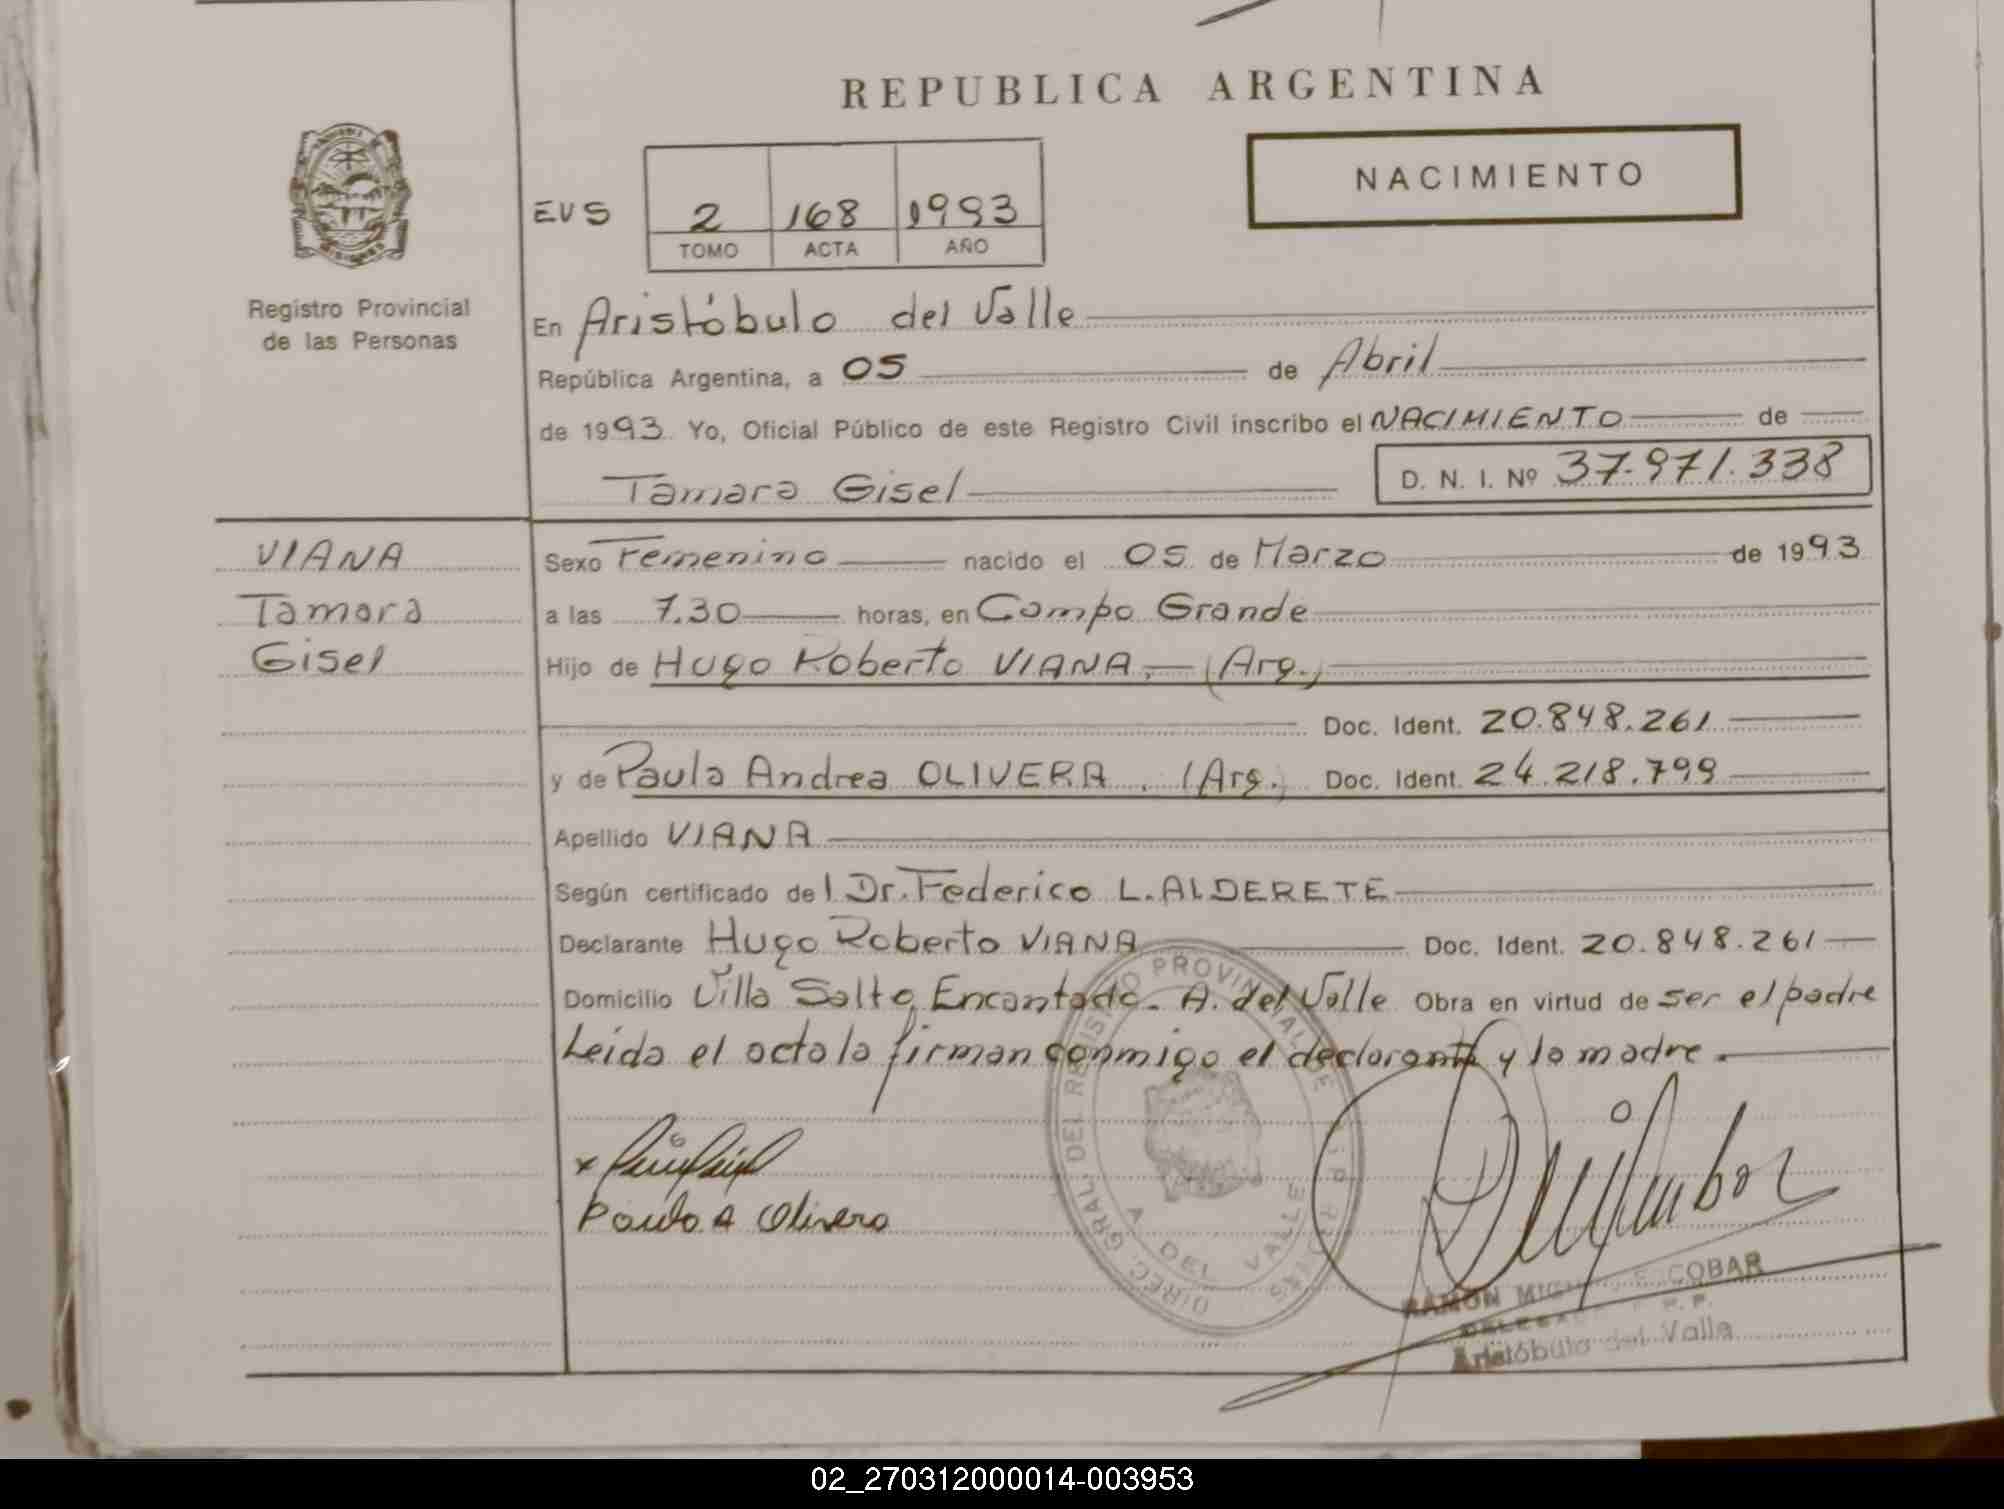 REPUBLICA ARGENTINA
NACIMIENTO
EVS 2 168 1993
TOMO ACTA AÑO
Registro Provincial
de las Personas
En Aristóbulo del Valle
República Argentina, a 05 de Abril
de 1993 Yo, Oficial Público de este Registro Civil inscribo el NACIMIENTO de
Tamara Gisel D. N. I. Nº 37.971.338
VIANA
Tamara
Gisel
Sexo Femenino nacido el 05 de Marzo de 1993
a las 7.30 horas, en Campo Grande
Hijo de Hugo Roberto VIANA. (Arg.)
Doc. Ident. 20.848.261
y de Paula Andrea OLIVERA. (Arg.) Doc. Ident. 24.218.799
Apellido VIANA
Según certificado del Dr. Federico L. ALDERETE
Declarante Hugo Roberto VIANA Doc. Ident. 20.848.261
Domicilio Villa Salto Encantado - A. del Valle Obra en virtud de ser el padre
Leida el acta la firman conmigo el declarante y la madre.
Paula A Olivera
DIREC. GRAL. DEL REGISTRO PROVINCIAL DE
A DEL VALLE
RAMON ESCOBAR
Aristóbulo del Valle
02_270312000014-003953